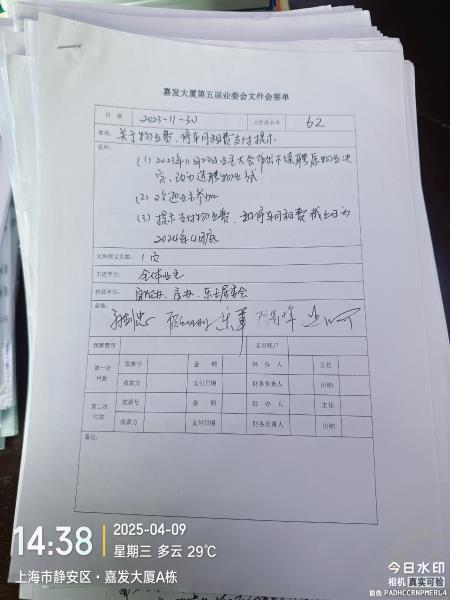 嘉发大厦第五届业委会文件会签单
日 期 2023-11-30 文件流水号 62
事项: 关于物业费、停车间租费支付提示
说明:
(1) 2023年11月23日业主大会作出不续聘原物业决
定,改为选聘物业
(2) 欢迎业主参加
(3) 提示支付物业费、和停车间租费截止日为
2024年4月底
文件原文页数: 1页
主送单位: 全体业主
抄送单位: 房办、居委会
会签:
预算费用 支出账户
第一次付款 发票号 金 额 经 办 人 主任
收款方 支付日期 财务负责人 出纳
第二次付款 发票号 金 额 经 办 人 主任
收款方 支付日期 财务负责人 出纳
备注:
14:38
2025-04-09
星期三 多云 29℃
上海市静安区·嘉发大厦A栋
今日水印
相机 真实可验
防伪 PADHCCRNPMERL4